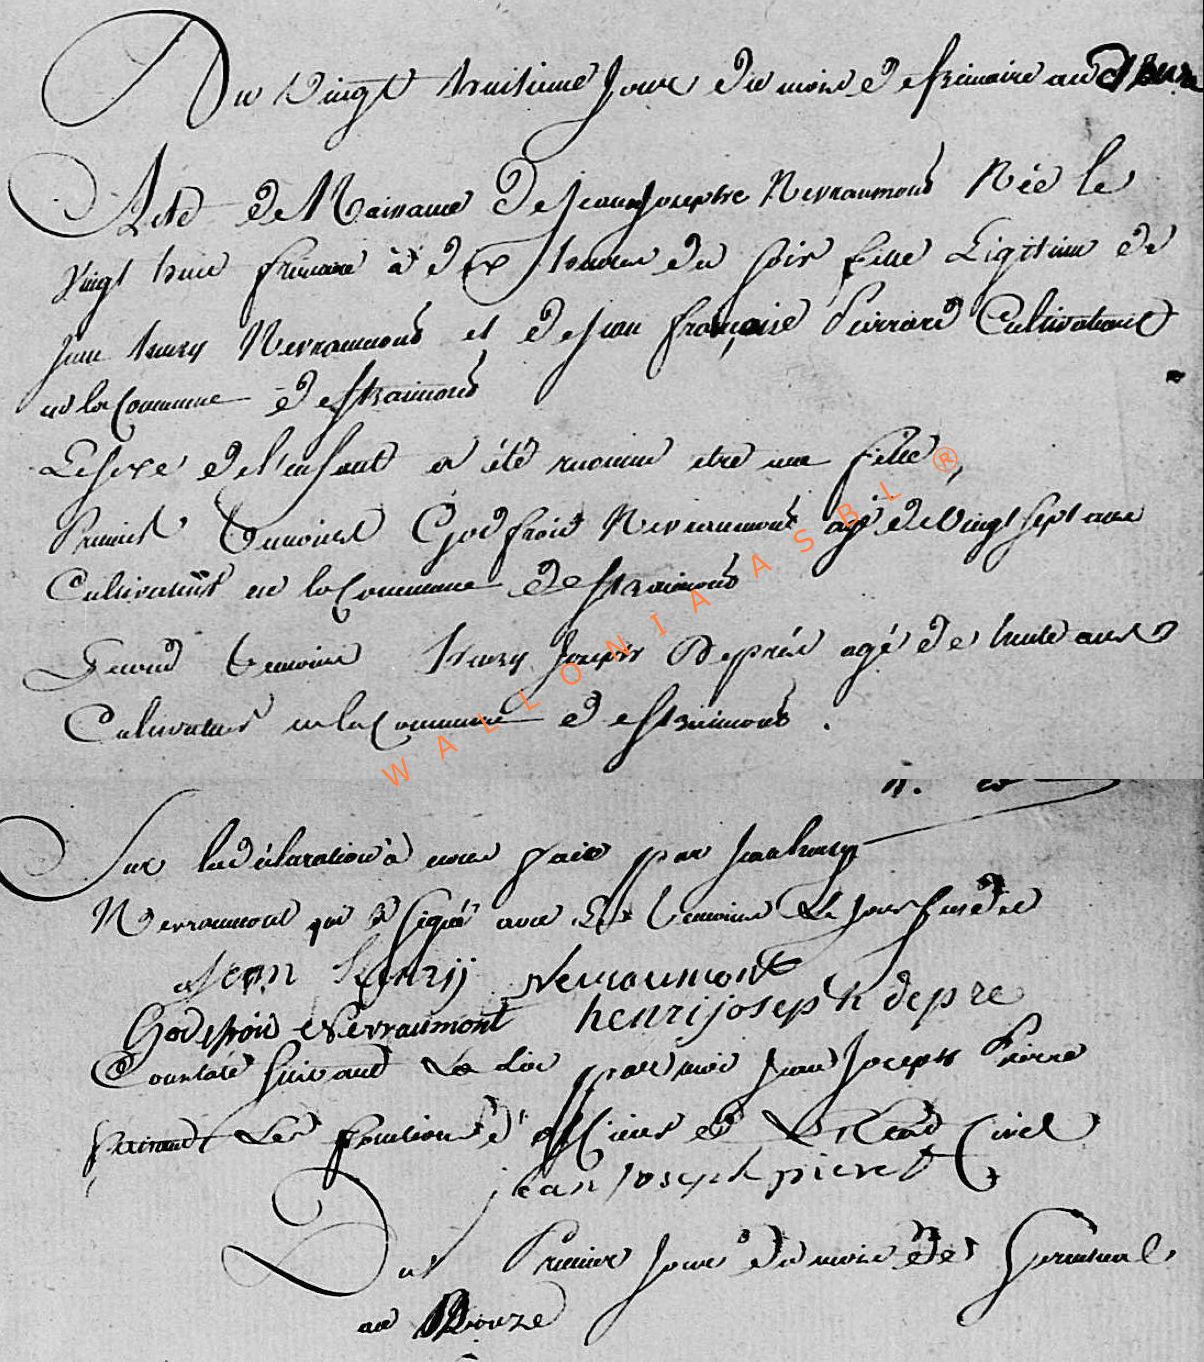 Du vingt huitieme jour du mois de frimaire an
Acte de Naissance de jeanne josephe Nevraumont Née le
vingt huit frimaire à dix heures du soir fille Legitime de
jean henry Nevraumont et de jean françoise Pierrard Cultivateurs
en la Commune de straimont
Lesexe de l'enfant a été reconnu etre une fille,
Premier temoins Godfroid Nevraumont agé de vingt sept ans
Cultivateur en la Commune de straimont
Second temoins henry joseph Deprés agé de trente ans
Cultivateur en la Commune de straimont .
WALLONIA ASBL ®
Sur la déclaration à nous faite par jean henry
Nevraumont qui a signé avec Les temoins Le jour susdit
jean henrij nevraumont
Godefroid Nevraumont henrij joseph depre
Constaté suivant La Loi par moi jean joseph Pierre
faisant Les fonctions d'officier de L'Etat Civil
jean joseph pieret
Du Premier jour du mois de Germinal
an Douze